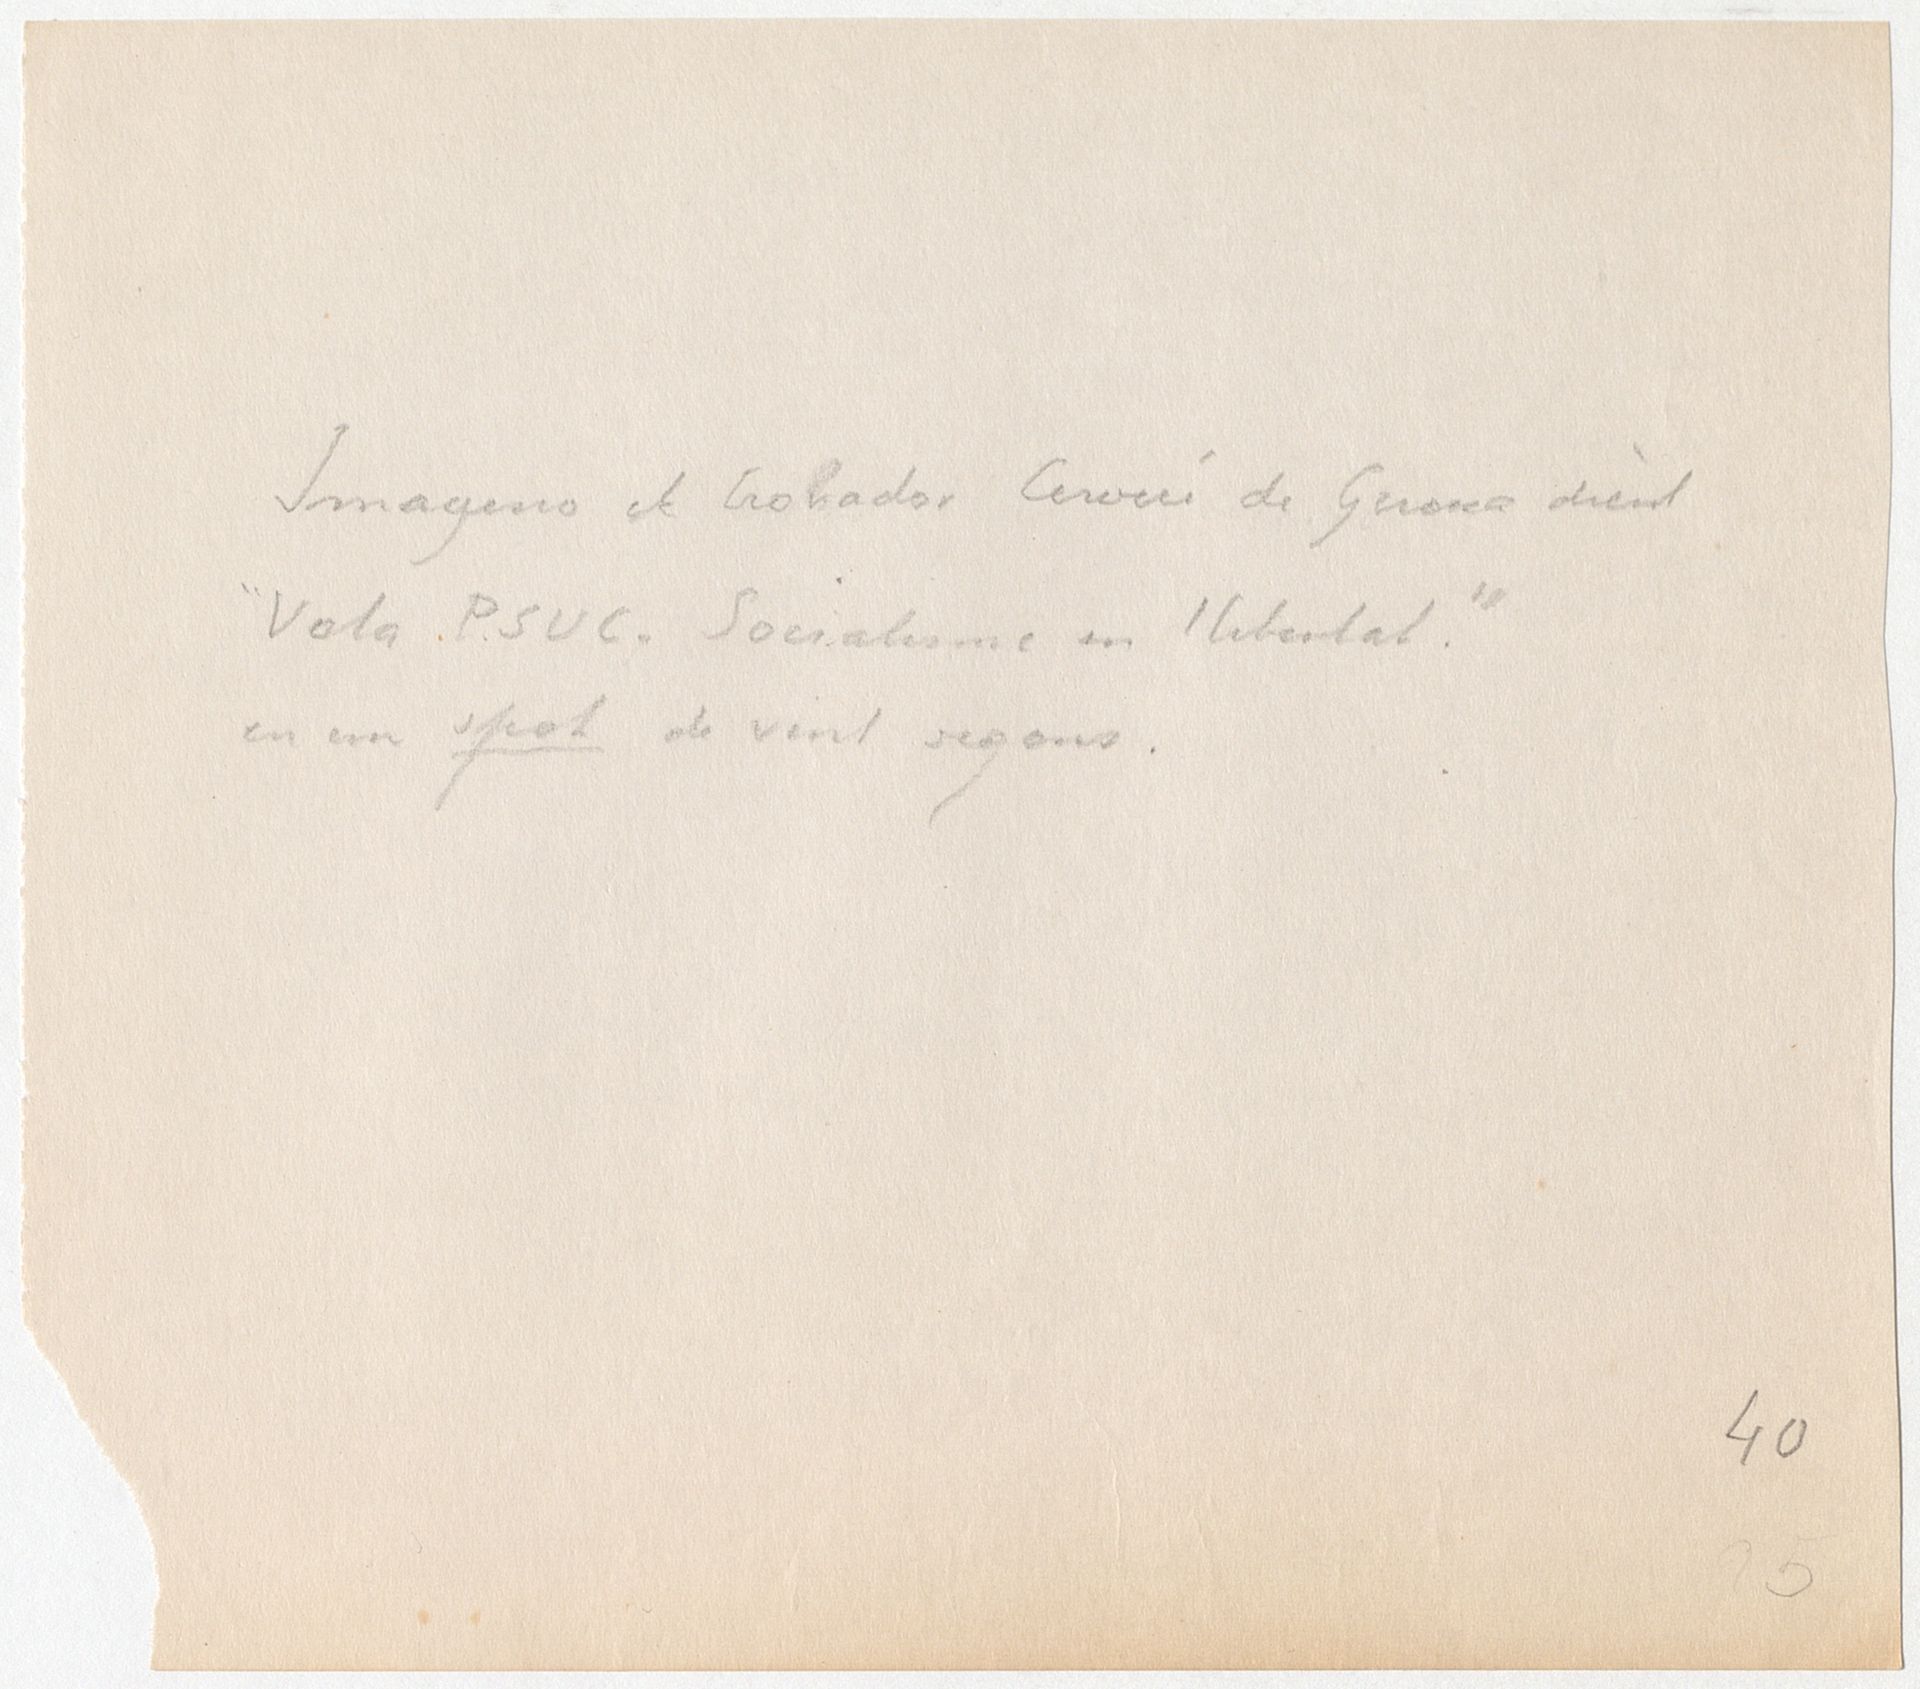 Imageno el trobador Cerverí de Gerona dient
"Vota PSUC. Socialisme en llibertat."
en un spot de vint segons.
40
25